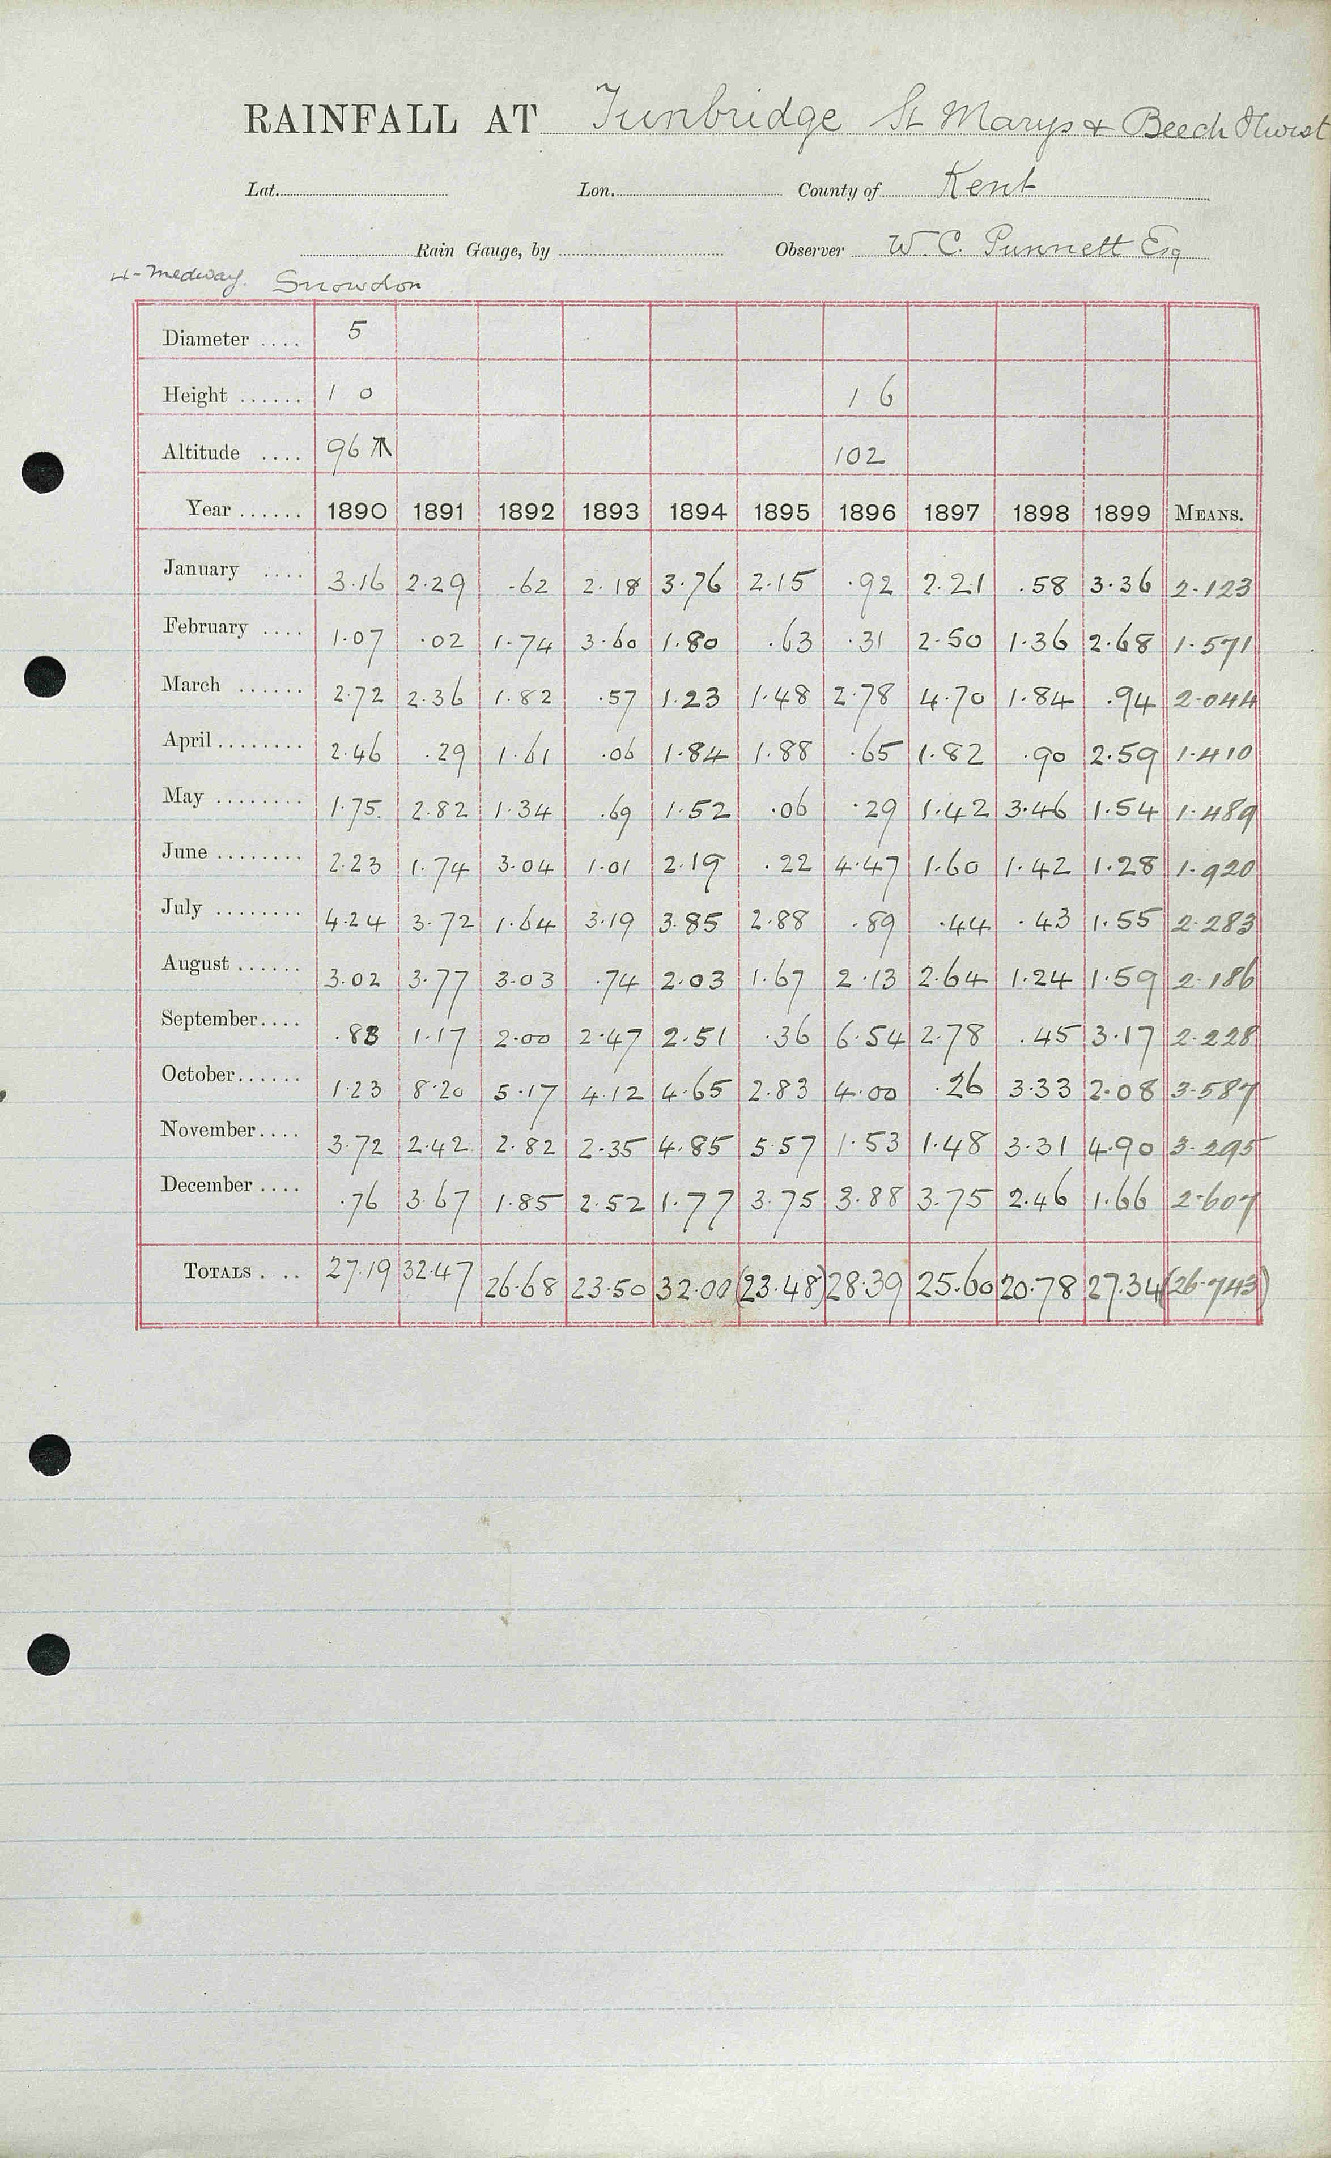 RAINFALL AT Tunbridge St Marys & Beech Hurst
Lat. Lon. County of Kent
Rain Gauge, by Observer W. C. Punnett Esq
4-Medway. Snowdon
Diameter .... 5
Height ...... 1 0 1 6
Altitude .... 96 102
Year ...... 1890 1891 1892 1893 1894 1895 1896 1897 1898 1899 MEANS.
January .... 3.16 2.29 .62 2.18 3.76 2.15 .92 2.21 .58 3.36 2.123
February .... 1.07 .02 1.74 3.60 1.80 .63 .31 2.50 1.36 2.68 1.571
March ...... 2.72 2.36 1.82 .57 1.23 1.48 2.78 4.70 1.84 .94 2.044
April ........ 2.46 .29 1.61 .06 1.84 1.88 .65 1.82 .90 2.59 1.410
May ........ 1.75 2.82 1.34 .69 1.52 .06 .29 1.42 3.46 1.54 1.489
June ........ 2.23 1.74 3.04 1.01 2.19 .22 4.47 1.60 1.42 1.28 1.920
July ........ 4.24 3.72 1.64 3.19 3.85 2.88 .89 .44 .43 1.55 2.283
August ...... 3.02 3.77 3.03 .74 2.03 1.67 2.13 2.64 1.24 1.59 2.186
September .... .83 1.17 2.00 2.47 2.51 .36 6.54 2.78 .45 3.17 2.228
October ...... 1.23 8.20 5.17 4.12 4.65 2.83 4.00 .26 3.33 2.08 3.587
November .... 3.72 2.42 2.82 2.35 4.85 5.57 1.53 1.48 3.31 4.90 3.295
December .... .76 3.67 1.85 2.52 1.77 3.75 3.88 3.75 2.46 1.66 2.607
TOTALS .... 27.19 32.47 26.68 23.50 32.00 (23.48) 28.39 25.60 20.78 27.34 (26.743)